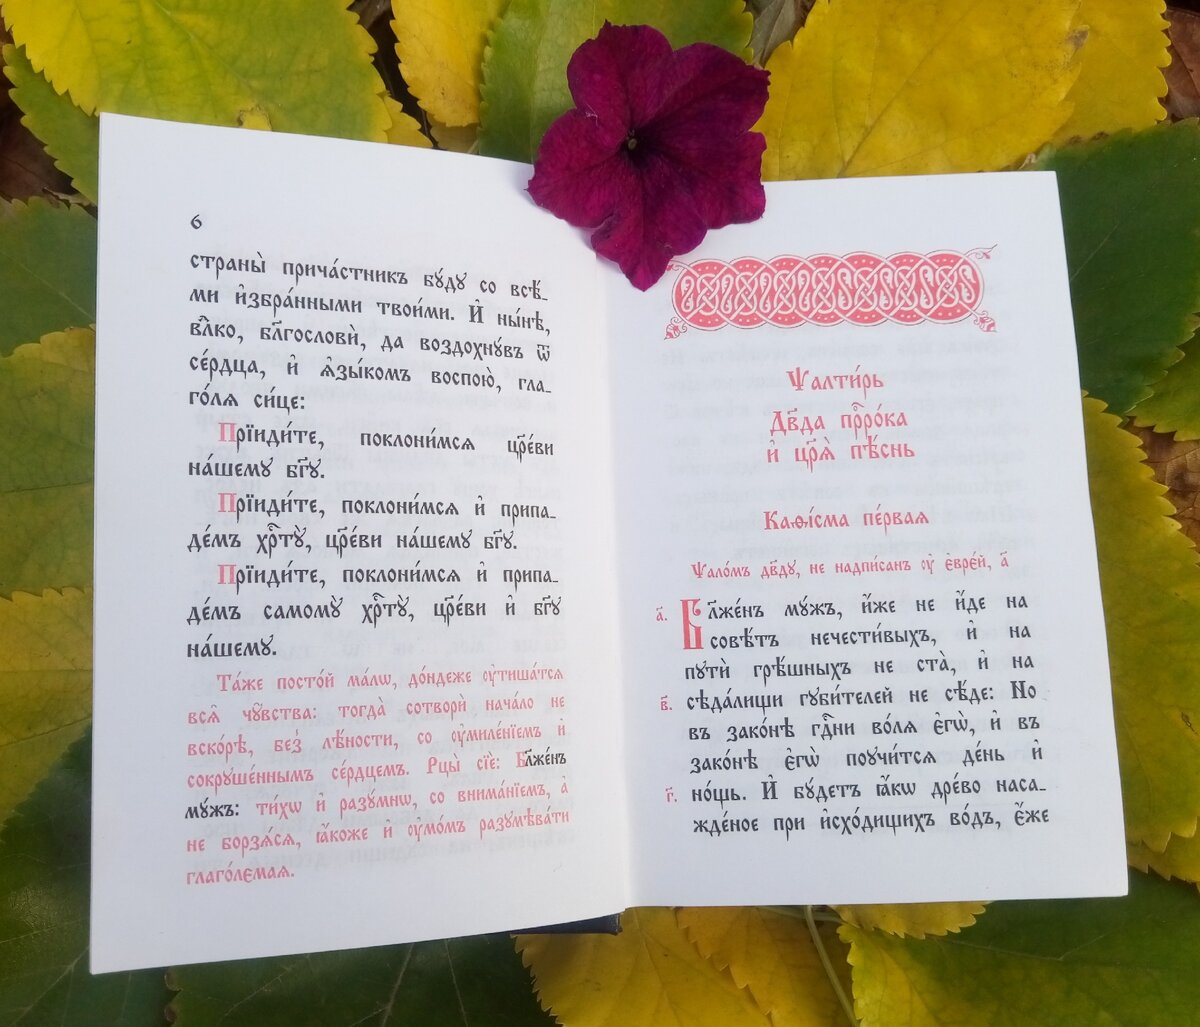 6
страны̀ прича́стникъ бꙋ́дꙋ со всѣ́-
ми и҆збра́нными твои́ми. И҆ ны́нѣ,
влⷣко, бл҃гословѝ, да воздохнꙋ́въ ѿ
се́рдца, и҆ ѧ҆зы́комъ воспою̀, гла-
го́лѧ си́це:
Прїиди́те, поклони́мсѧ цр҃е́ви
на́шемꙋ бг҃ꙋ.
Прїиди́те, поклони́мсѧ и҆ припа-
де́мъ хрⷭ҇тꙋ̀, цр҃е́ви на́шемꙋ бг҃ꙋ.
Прїиди́те, поклони́мсѧ и҆ припа-
де́мъ самомꙋ̀ хрⷭ҇тꙋ̀, цр҃е́ви и҆ бг҃ꙋ
на́шемꙋ.
Та́же посто́й ма́лѡ, до́ндеже ᲂу҆тиша́тсѧ
всѧ̑ чꙋ̑вства: тогда̀ сотворѝ нача́ло не
вско́рѣ, без̾ лѣ́ности, со ᲂу҆миле́нїемъ и҆
сокрꙋше́ннымъ се́рдцемъ. Рцы̀ сїѐ: Бл҃же́нъ
мꙋ́жъ: ти́хѡ и҆ разꙋ́мнѡ, со внима́нїемъ, а҆
не борзѧ́сѧ, ꙗ҆́коже и҆ ᲂу҆мо́мъ разꙋмѣва́ти
глаго́лемаѧ.
Ѱалти́рь
Дв҃да прⷪ҇ро́ка
и҆ цр҃ѧ̀ пѣ́снь
Каѳі́сма пе́рваѧ
Ѱало́мъ дв҃дꙋ, не надпи́санъ ᲂу҆ є҆вре́й, а҃
а҃. Бл҃же́нъ мꙋ́жъ, и҆́же не и҆́де на
совѣ́тъ нечести́выхъ, и҆ на
пꙋтѝ грѣ́шныхъ не ста̀, и҆ на
в҃. сѣда́лищи гꙋби́телей не сѣ́де: Но
въ зако́нѣ гдⷭ҇ни во́лѧ є҆гѡ̀, и҆ въ
зако́нѣ є҆гѡ̀ поꙋчи́тсѧ де́нь и҆
г҃. но́щь. И҆ бꙋ́детъ ꙗ҆́кѡ дре́во наса-
жде́ное при и҆схо́дищихъ во́дъ, є҆́же